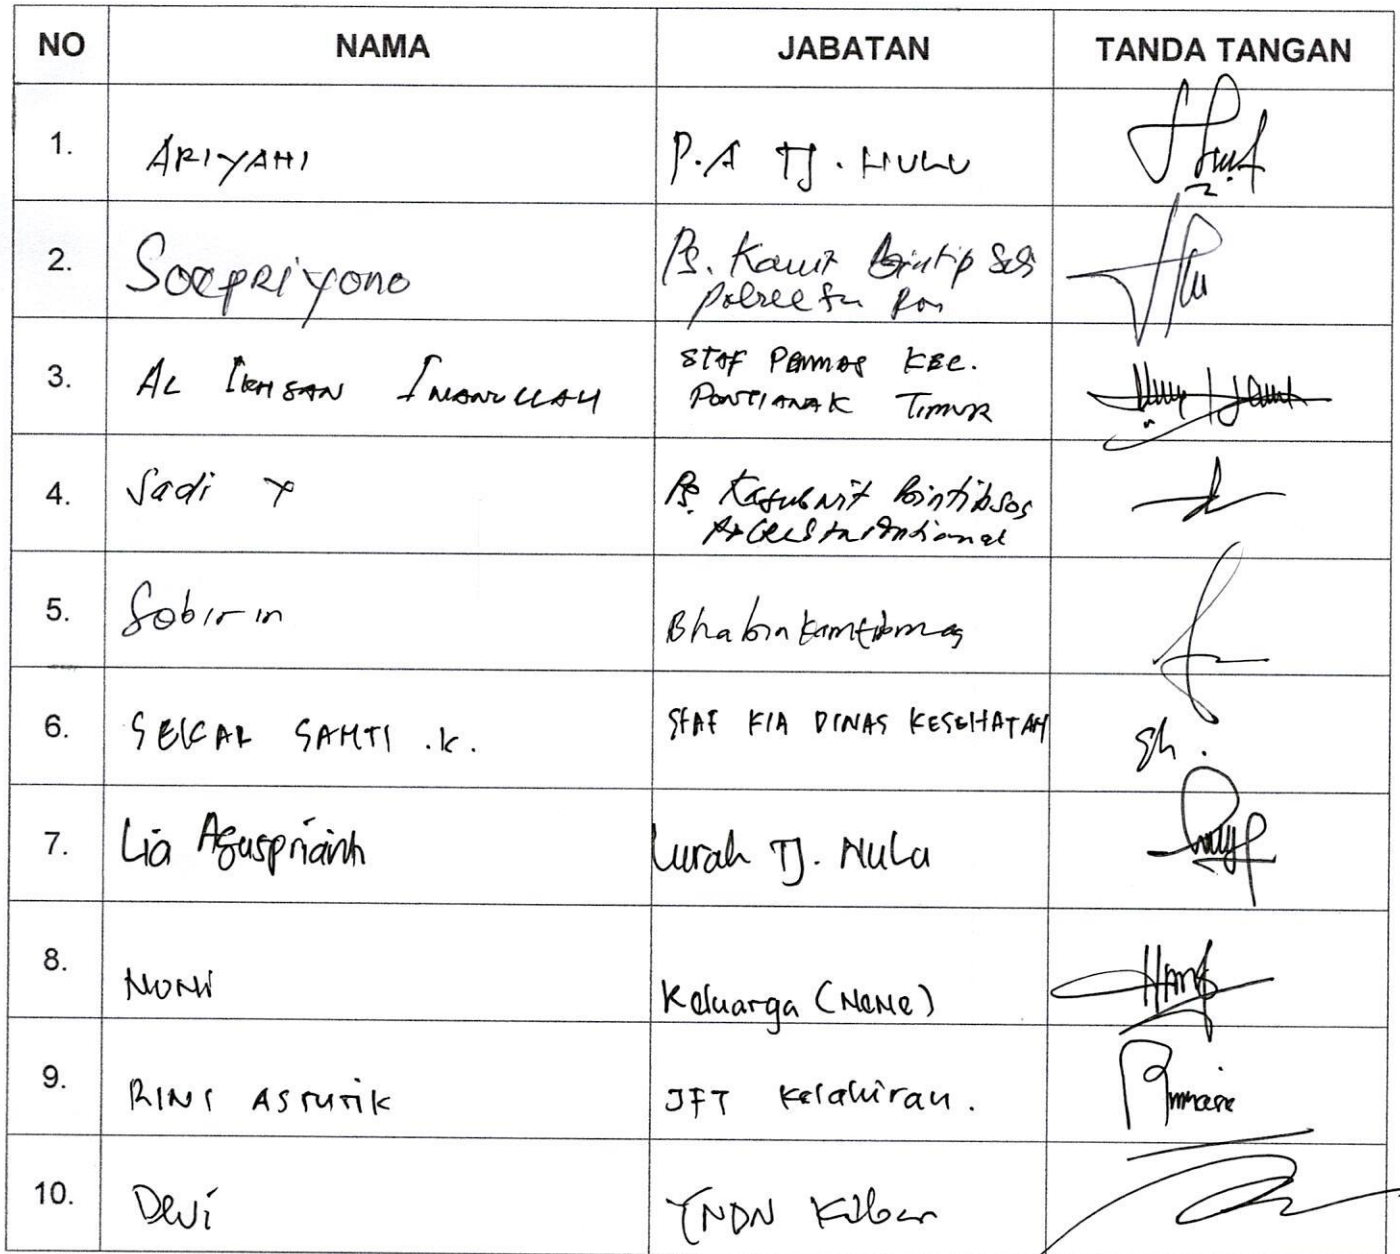 NO NAMA JABATAN TANDA TANGAN
1. ARIYANI P.A TJ. HULU
2. Soepriyono Ps. Kanit Bintip
3. AL IKHSAN IMANULLAH STAF PEMMAS KEC.
PONTIANAK TIMUR
4. Sadi Y Ps. Kasubnit Bintibsos
5. Sobirin Bhabinkamtibmas
6. SEKAR SANTI .K. STAF KIA DINAS KESEHATAN
7. Lia Aguspriainti Lurah TJ. Hulu
8. NONI Keluarga (NENE)
9. RINI ASTUTIK JFT Kelahiran.
10. Devi YNDN Kalbar